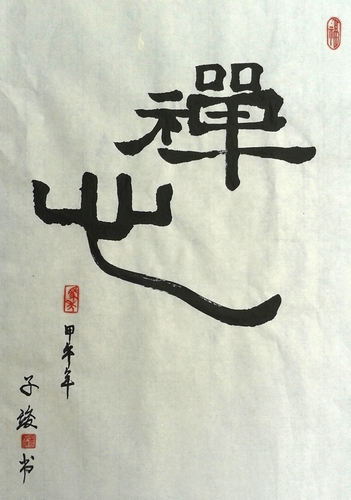 禪
心
甲午年
子竣书